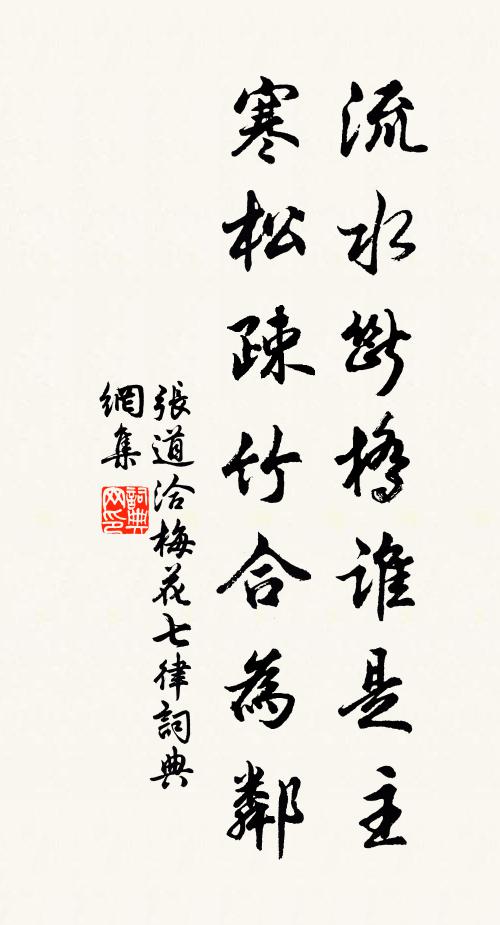 流水斷橋誰是主
寒松疎竹合為鄰
張道洽梅花七律詞典
網集
詞典網印